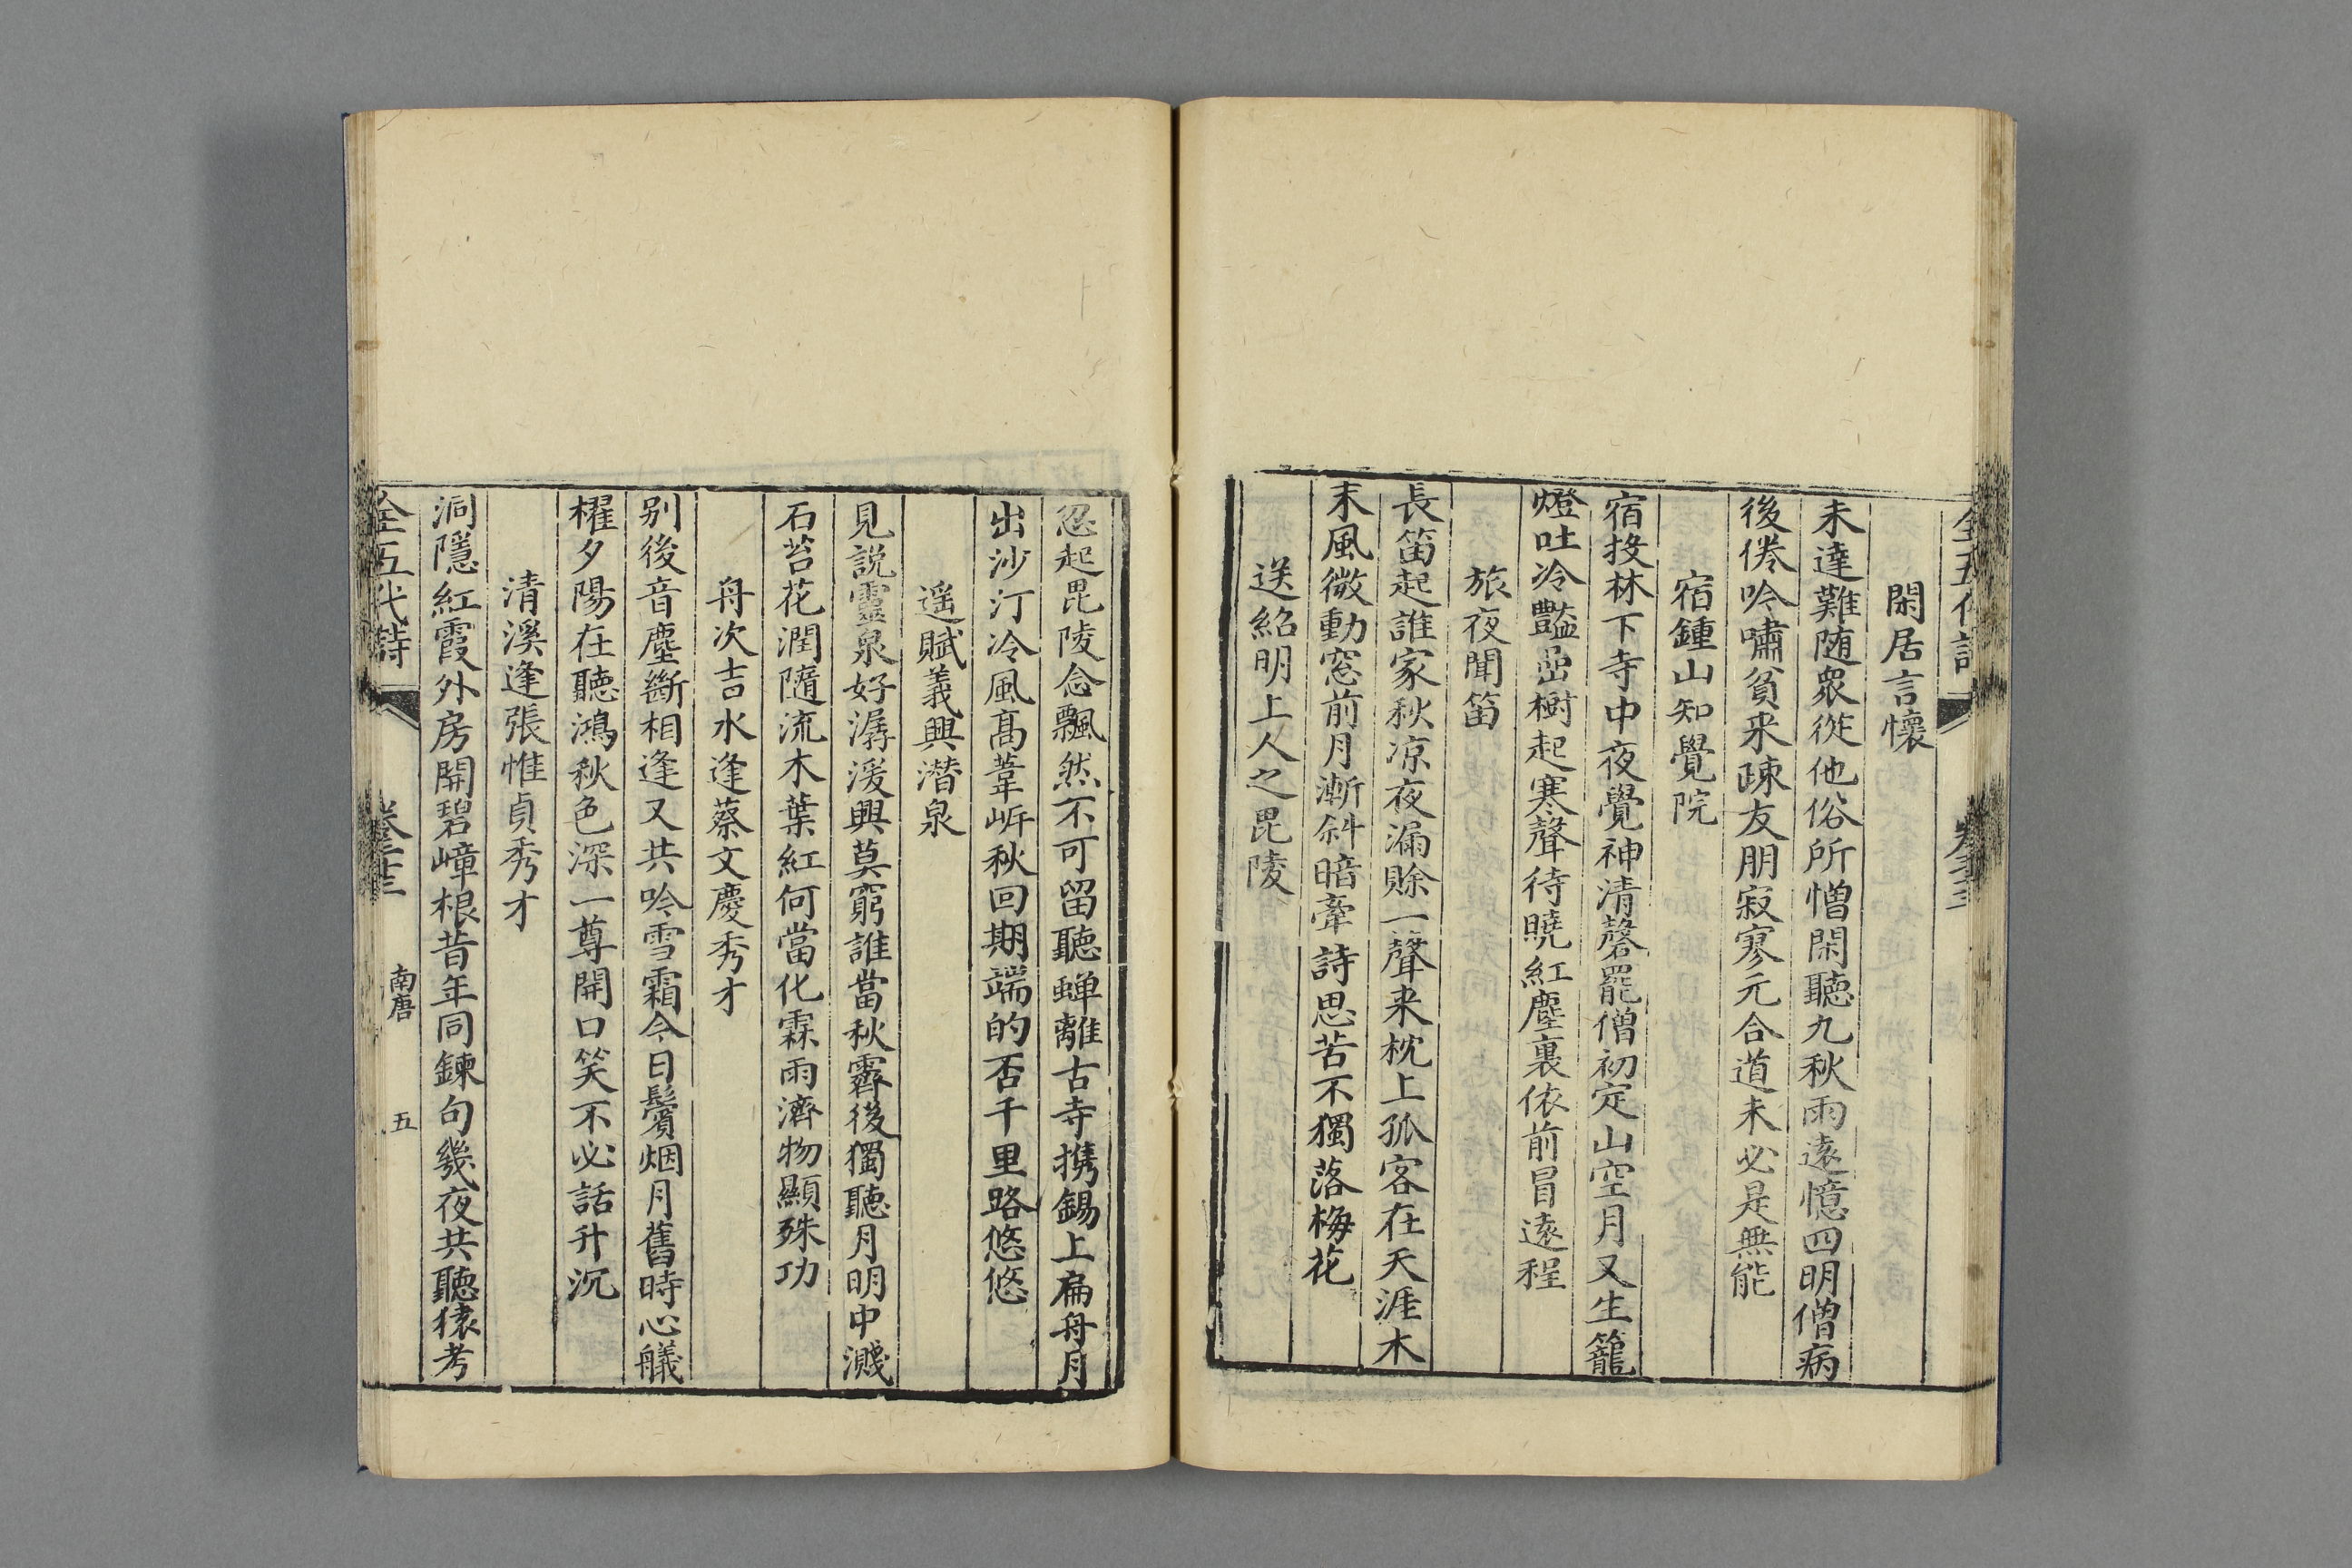 閑居言懷
未達難随衆從他俗所憎閑聽九秋雨遠憶四明僧病
後倦吟嘯貧来疎友朋寂寥元合道未必是無能
宿鍾山知覺院
宿投林下寺中夜覺神清磬罷僧初定山空月又生籠
燈吐冷豔嵒樹起寒聲待曉紅塵裏依前冒遠程
旅夜聞笛
長笛起誰家秋凉夜漏賒一聲来枕上孤客在天涯木
末風微動窓前月漸斜暗牽詩思苦不獨落梅花
送紹明上人之毘陵
忽起毘陵念飄然不可留聽蟬離古寺携錫上扁舟月
出沙汀冷風髙葦岍秋回期端的否千里路悠悠
遥賦義興潜泉
見説靈泉好潺湲興莫窮誰當秋霽後獨聽月明中濺
石苔花潤隨流木葉紅何當化霖雨濟物顯殊功
舟次吉水逢蔡文慶秀才
别後音塵斷相逢又共吟雪霜今日鬢烟月舊時心艤
櫂夕陽在聽鴻秋色深一尊開口笑不必話升沉
清溪逢張惟貞秀才
洞隱紅霞外房開碧嶂根昔年同鍊句幾夜共聽猿考
全五代詩
南唐
五